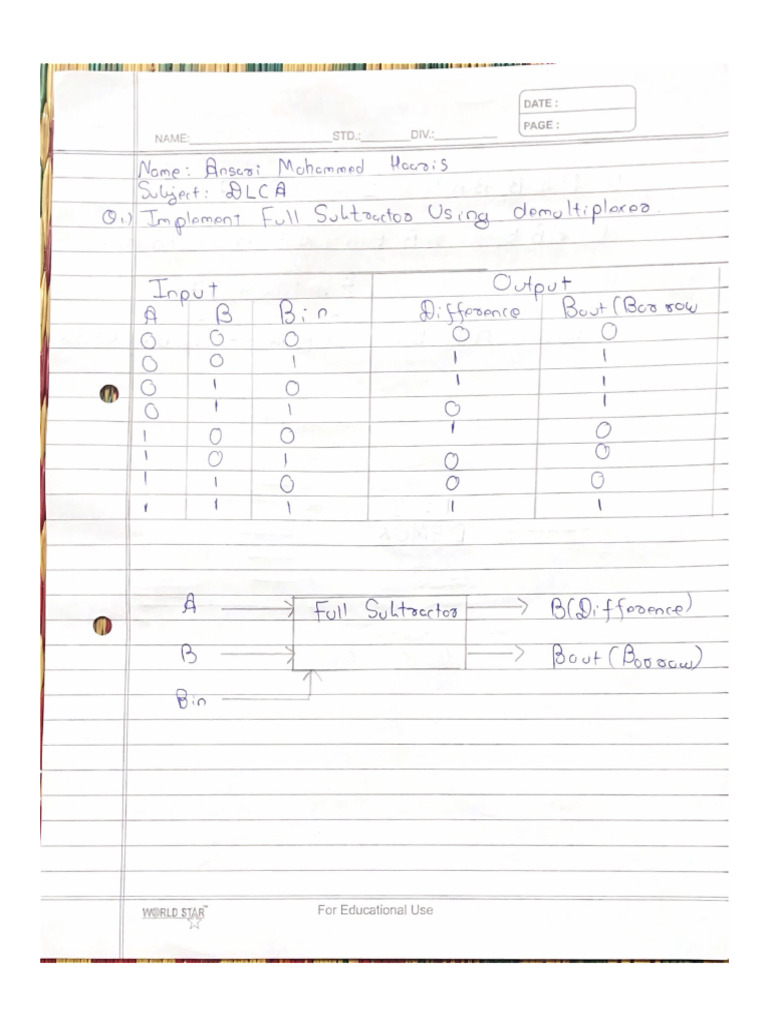 DATE :
PAGE :
NAME: STD.: DIV.:
Name: Ansari Mohammed Haaris
Subject: DLCA
Q1.) Implement Full Subtractor Using demultiplexer
Input Output
A B Bin Difference Bout (Borrow
0 0 0 0 0
0 0 1 1 1
0 1 0 1 1
0 1 1 0 1
1 0 0 1 0
1 0 1 0 0
1 1 0 0 0
1 1 1 1 1
A Full Subtractor B(Difference)
B Bout (Borrow)
Bin
WORLD STAR™ For Educational Use